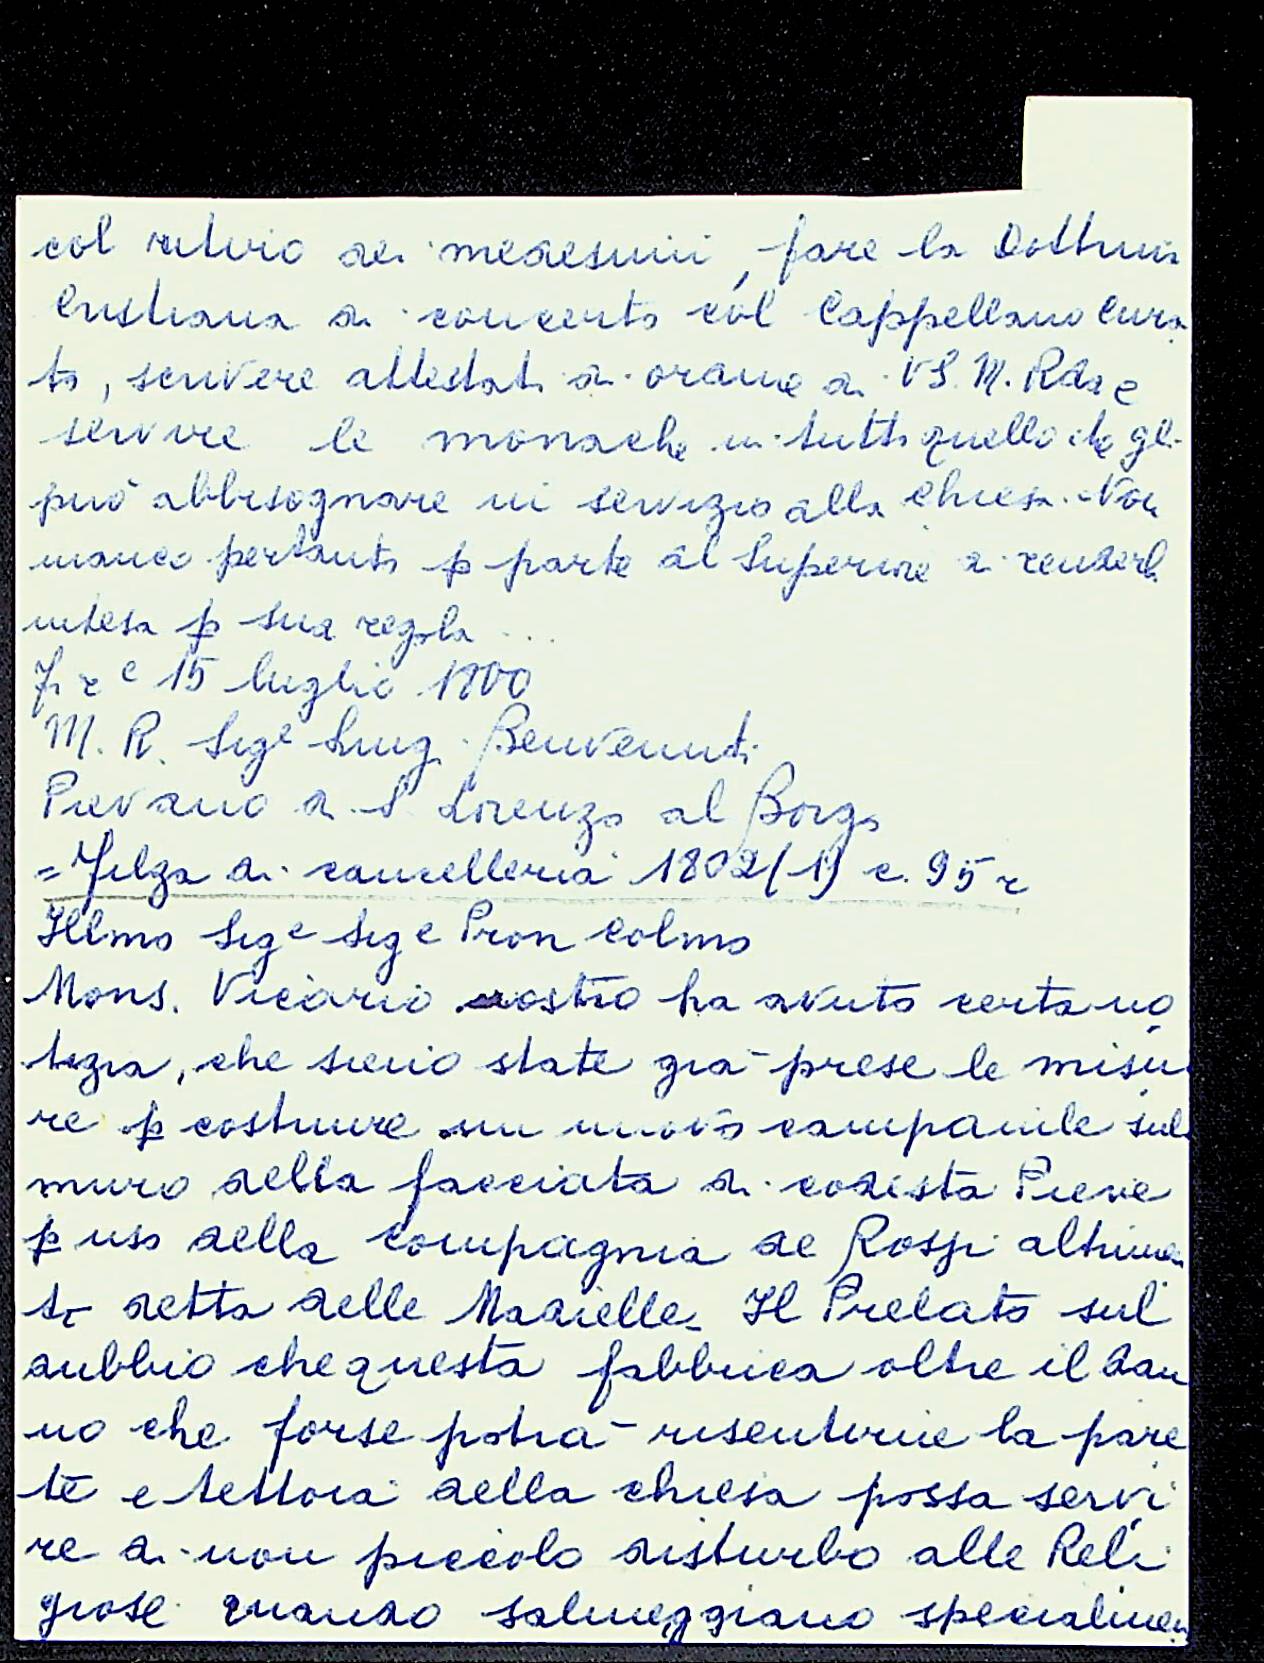 col retiro dei medesimi, fare la Dottrina
Cristiana di concerto col Cappellano Cura
to, scrivere attestati di ordine di VS. M. Rda e
servire le monache in tutto quello che gli
può abbisognare in servizio alla chiesa. Non
manco pertanto ꝑ parte del Superiore di renderla
intesa ꝑ sua regola ...
15 luglio 1800
M. R. Sigᵉ Benvenuti
Pievano di S. Lorenzo al Borgo
= Filza di cancelleria 1802/19 c. 95 r
Illmo Sigᵉ Sigᵉ Pron Colmo
Mons. Vicario nostro ha avuto certa no
tizia, che sieno state già prese le misu
re ꝑ costruire un nuovo campanile sul
muro della facciata di codesta Pieve
ꝑ uso della Compagnia de Rossi altrimen
ti detta delle Marielle. Il Prelato sul
dubbio che questa fabbrica oltre il dan
no che forse potrà risentirne la pare
te e tettoia della chiesa possa servi
re di non piccolo disturbo alle Reli
giose quando salmeggiano specialmen